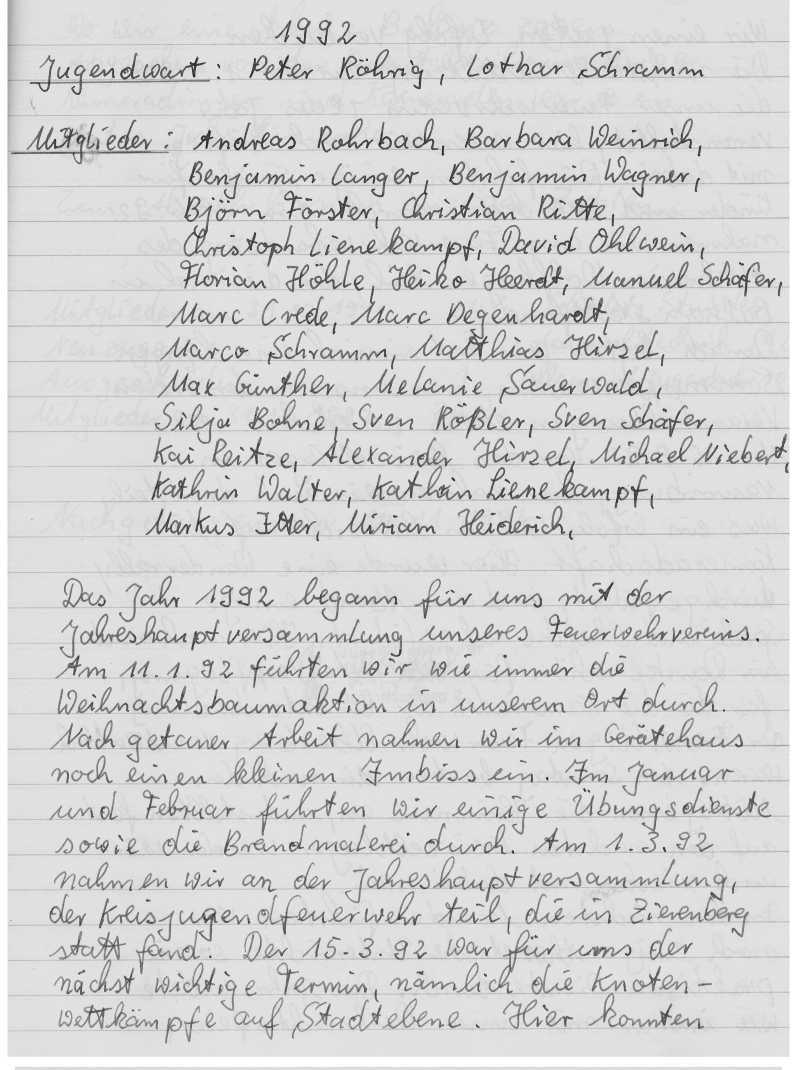 1992
Jugendwart: Peter Röhrig, Lothar Schramm
Mitglieder: Andreas Rohrbach, Barbara Weinrich,
Benjamin Langer, Benjamin Wagner,
Björn Förster, Christian Ritte,
Christoph Lienekampf, David Ohlwein,
Florian Höhle, Heiko Heerdt, Manuel Schäfer,
Marc Crede, Marc Degenhardt,
Marco Schramm, Matthias Hirzel,
Max Günther, Melanie Sauerwald,
Silja Bohne, Sven Rößler, Sven Schäfer,
Kai Reitze, Alexander Hirzel, Michael Niebert,
Kathrin Walter, Kathrin Lienekampf,
Markus Itter, Miriam Heiderich,
Das Jahr 1992 begann für uns mit der
Jahreshauptversammlung unseres Feuerwehrvereins.
Am 11.1.92 führten wir wie immer die
Weihnachtsbaumaktion in unserem Ort durch.
Nach getaner Arbeit nahmen wir im Gerätehaus
noch einen kleinen Imbiss ein. Im Januar
und Februar führten wir einige Übungsdienste
sowie die Brandmalerei durch. Am 1.3.92
nahmen wir an der Jahreshauptversammlung,
der Kreisjugendfeuerwehr teil, die in Zierenberg
statt fand. Der 15.3.92 war für uns der
nächst wichtige Termin, nämlich die Knoten-
wettkämpfe auf Stadtebene. Hier konnten